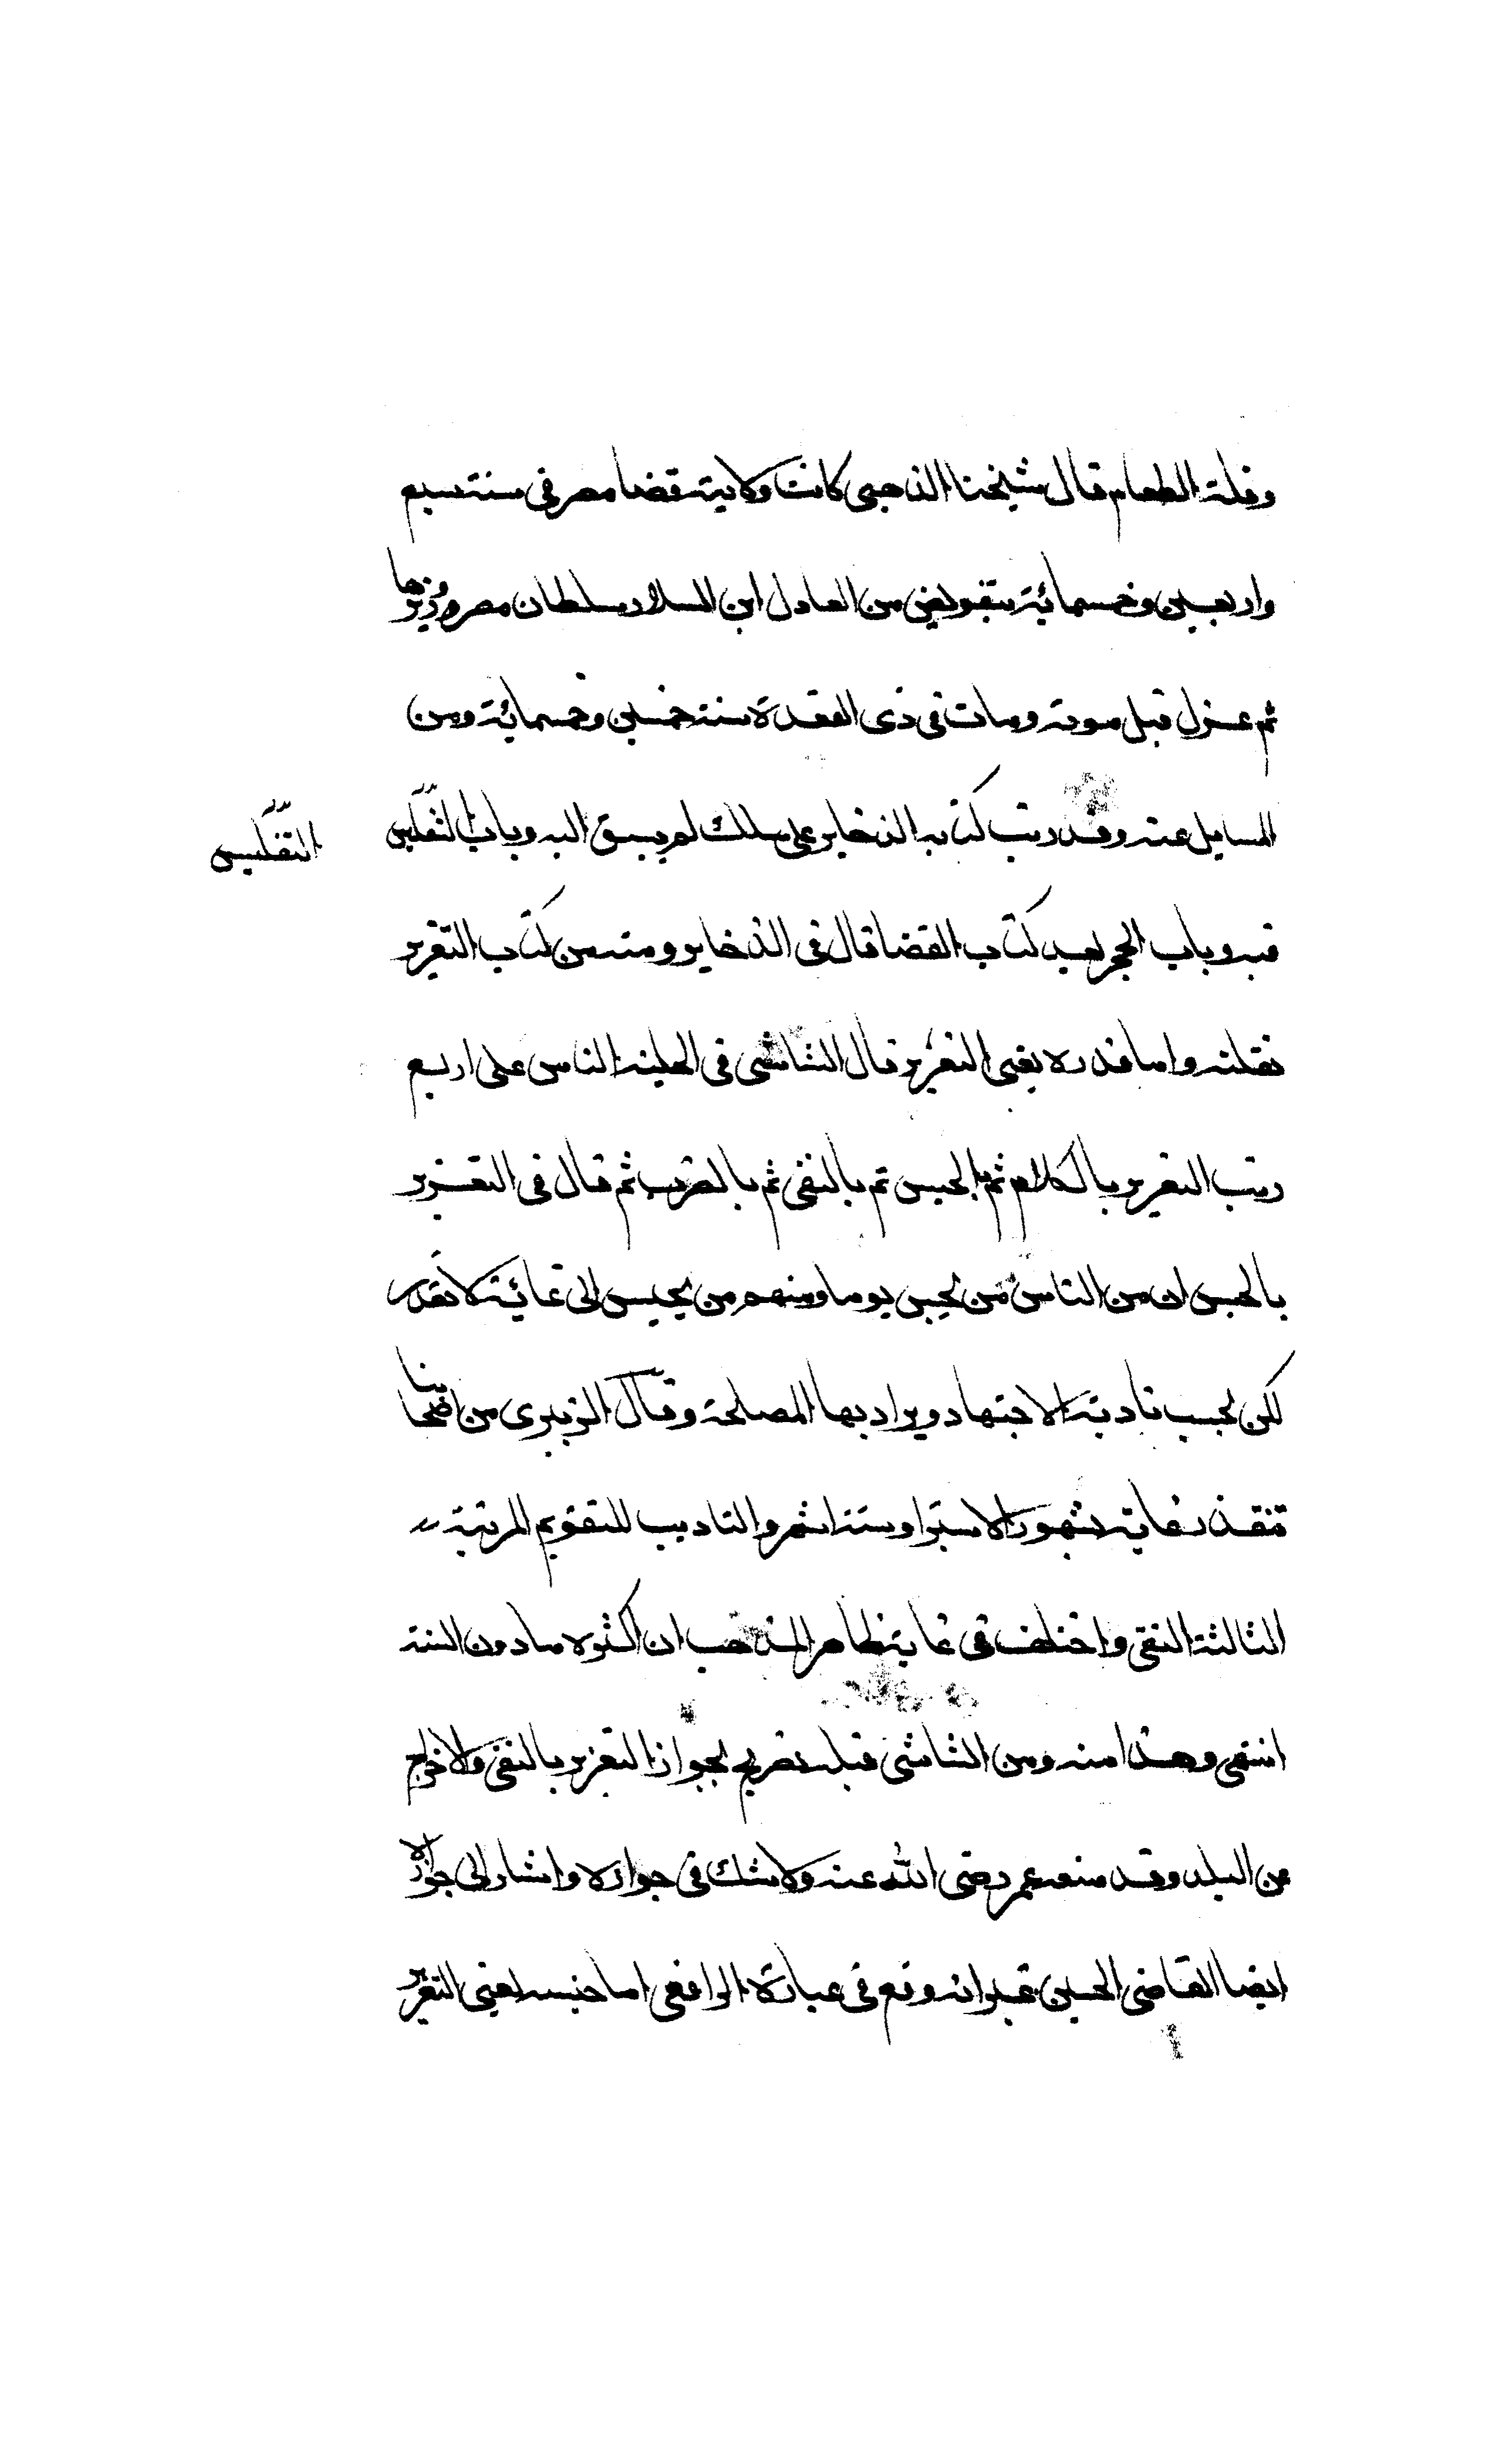 وقلة الطعام قال شيخنا الذهبى كانت ولاية قضا مصر فى سنة سبع
واربعين وخمسمائة بتفويض من العادل ابن السلار سلطان مصر ووزيرها
ثم عزل قبل موته ومات فى ذى القعدة سنة خمسين وخمسمائة ومن
المسايل عنه وقد رتب كتابه الذخاير على سلك لم يسبق اليه وباب التفليس
التفليس
فيه وباب الحجر بعد كتاب القضا قال فى الذخاير ومنه من كتاب التعزير
نقلته واما قدره يعنى التعزير قال الشاشى فى الحلية الناس على اربع
رتب التعزير بالكلام ثم بالحبس ثم بالنفى ثم بالضرب ثم قال فى التعزير
بالحبس ان من الناس من يحبس يوما ومنهم من يحبس الى غائية لا تقدر
لكن بحسب تادية الاجتهاد ويراد بها المصلحة وقال الزبيرى من اصحابنا
تتقدر غايته بشهور الاستبرا وستة اشهر والتاديب للتقويم المرتبة
الثالثة النفى واختلف فى غاية ظاهر المذهب ان اكثره ما دون السنة
انتهى وهذا منه ومن الشاشى قبله تصريح بجواز التعزير بالنفى والاخراج
من البلد وقد منعه عمر رضى الله عنه ولا شك فى جوازه واشار الى جوازه
ايضا القاضى الحسين غير انه وقع فى عبارة الرافعى اما جنسه يعنى التعزير